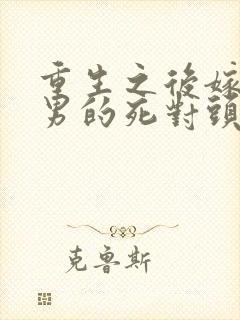 重生之後嫁
男的死對頭
克魯斯